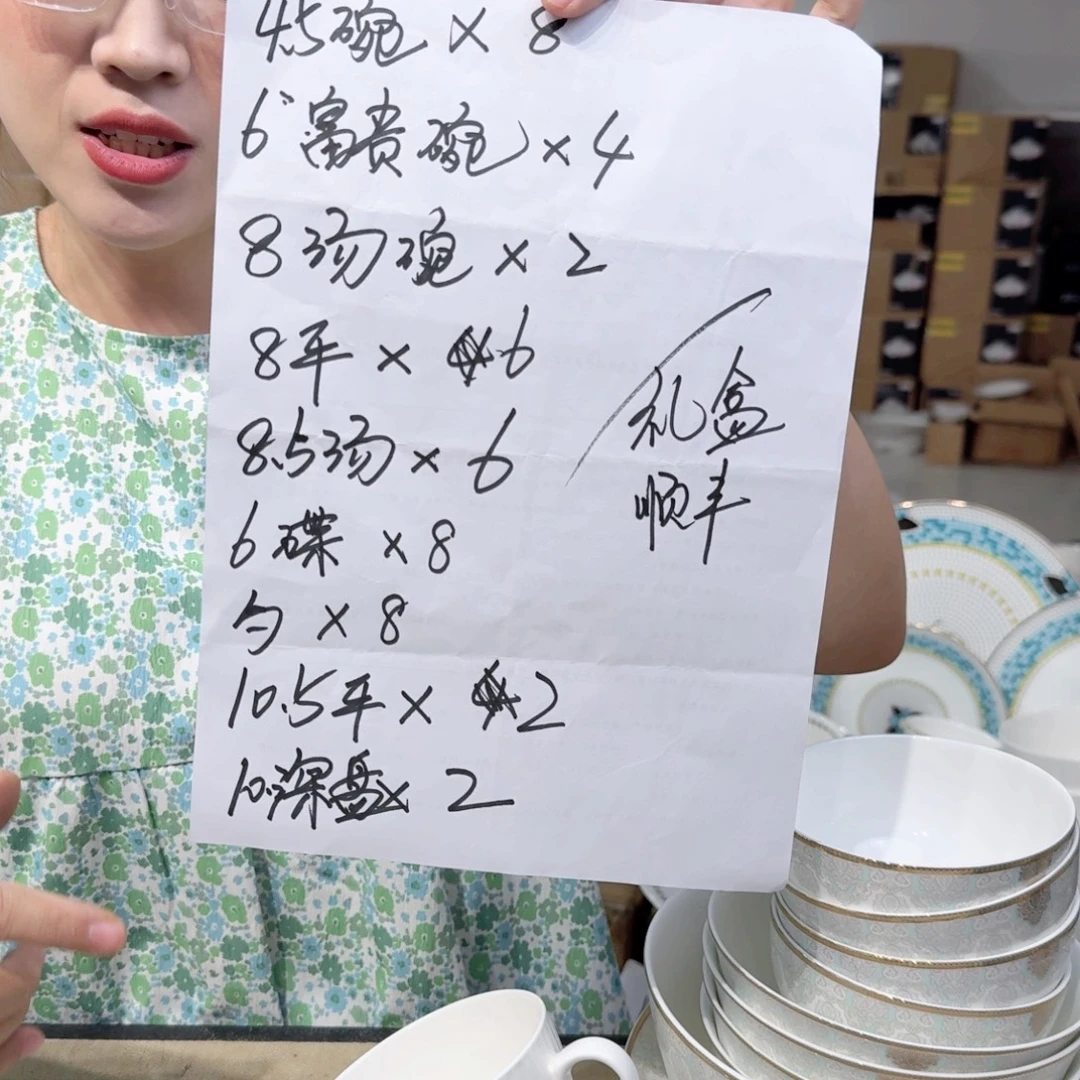 4.5碗 × 8
6"富贵碗 × 4
8汤碗 × 2
8平 × 6
8.5汤 × 6
6碟 × 8
勺 × 8
10.5平 × 2
10.5深盘 × 2
礼盒
顺丰